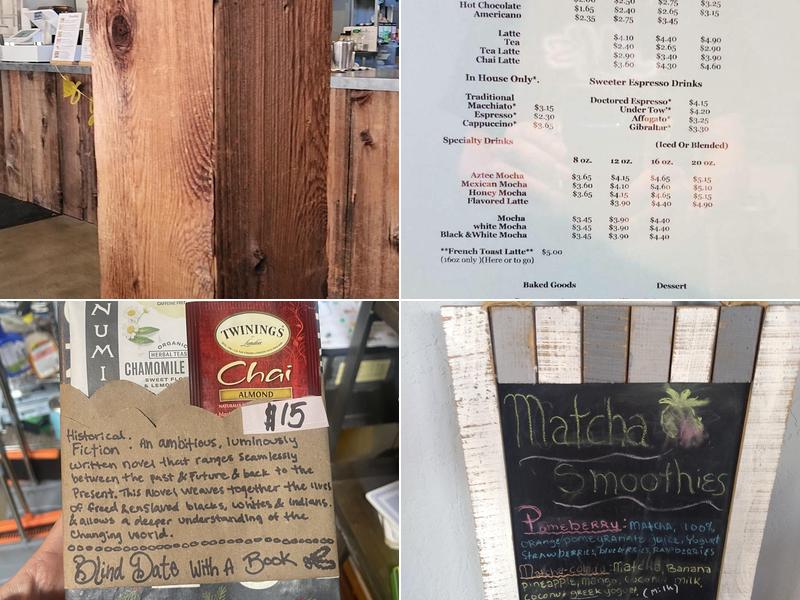 Hot Chocolate $1.65 $2.40 $2.65 $3.15
Americano $2.35 $2.75 $3.45
Latte $4.10 $4.40 $4.90
Tea $2.40 $2.65 $2.90
Tea Latte $2.90 $3.40 $3.90
Chai Latte $3.60 $4.30 $4.60
In House Only*.
Sweeter Espresso Drinks
Traditional
Macchiato* $3.15
Espresso* $2.30
Cappuccino* $3.65
Doctored Espresso* $4.15
Under Tow'* $4.20
Affogato* $3.25
Gibraltar* $3.30
Specialty Drinks
(Iced Or Blended)
8 oz. 12 oz. 16 oz. 20 oz.
Aztec Mocha $3.65 $4.15 $4.65 $5.15
Mexican Mocha $3.60 $4.10 $4.60 $5.10
Honey Mocha $3.65 $4.15 $4.65 $5.15
Flavored Latte $3.90 $4.40 $4.90
Mocha $3.45 $3.90 $4.40
white Mocha $3.45 $3.90 $4.40
Black &White Mocha $3.45 $3.90 $4.40
**French Toast Latte** $5.00
(16oz only )(Here or to go)
Baked Goods
Dessert
NUMI
CAFFEINE FREE
ORGANIC
HERBAL TEAS
CHAMOMILE
TWININGS
London
Chai
ALMOND
$15
Historical
Fiction: An ambitious, luminously
written novel that ranges seamlessly
between the past & Future & back to the
Present. This Novel weaves together the lives
of freed & enslaved blacks, whites & Indians.
& allows a deeper understanding of the
Changing world.
Blind Date With A Book
Matcha
Smoothies
Pomeberry: Matcha, 100%
orange pomegranate juice, Yogurt
Strawberries, blueberries, raspberries
Matcha-colada: Matcha, Banana
pineapple, Mango, Coconut milk,
coconut greek yogurt, (milk)